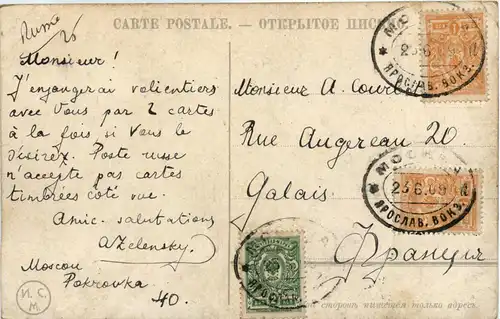 Russie
26
CARTE POSTALE. — ОТКРЫТОЕ ПИСЬ
Monsieur!
J'enjangerai volientiers
avec Vous par 2 cartes
à la fois si Vous le
désirez. Poste russe
n'accepte pas cartes
timbrées côté vue.
Amic. salutations
AZelensky.
Moscou
Pokrovka
40.
И. С.
М.
Monsieur A. Court
Rue Augereau 20.
Galais.
Франция
МОС
23.6.09
ЯРОСЛАВ. ВОКЗ.
МОСК
23.6.09
ЯРОСЛАВ. ВОКЗ.
ЯРОСЛАВ
сторонѣ пишется только адресъ